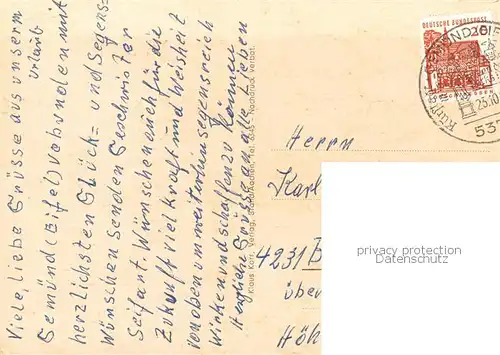 Viele, liebe Grüsse aus unserm
Urlaub
Gemünd (Eifel) Vebunden mit
herzlichsten Glück= und Segens=
Wünschen senden Geschwister
Seifart. Wünschen euch für die
Zukunft viel kraft und Weisheit
von oben um weiterhin segensreich
Wirken und schaffen zu können
Herzliche Grüsse an alle Lieben
Klaus Kort, Verlag,
Nachdruck verbot.
DEUTSCHE BUNDESPOST
20
GEMÜND
Kurort
537
Herrn
Karl
4231 B
über
Höh
privacy protection
Datenschutz